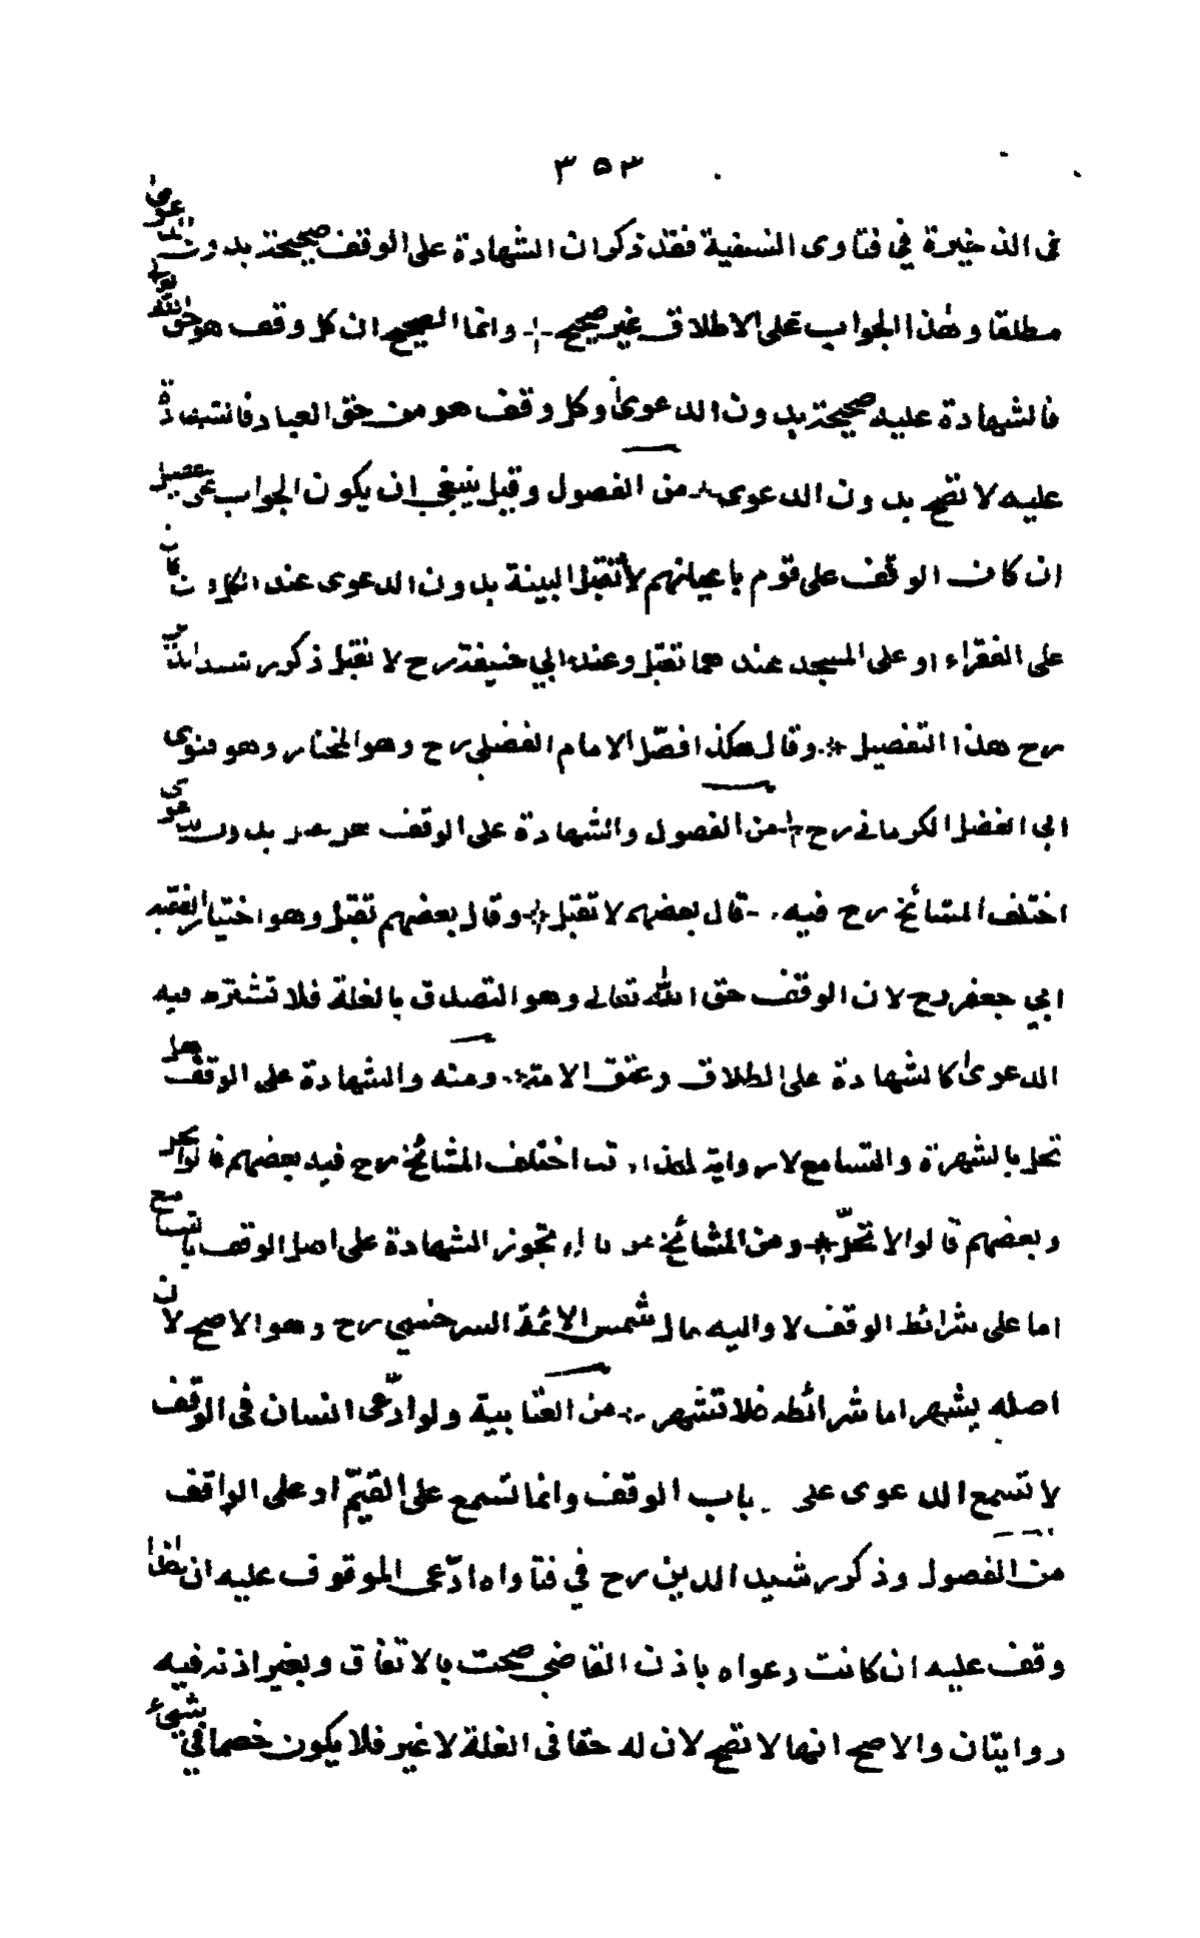 ۳۵۳
فى الذخيرة في فتاوى النسفية فقد ذكر ان الشهادة على الوقف صحيحة بدون الدعوىٰ
مطلقا وهٰذا الجواب على الاطلاق غير صحيح وانما الصحيح ان كل وقف هو حق الله تعالى
فالشهادة عليه صحيحة بدون الدعوىٰ وكل وقف هو من حق العباد فالشهادة
عليه لا تصح بدون الدعوى من الفصول وقيل ينبغي ان يكون الجواب على تفصيل
ان كان الوقف على قوم باعيانهم لا تقبل البينة بدون الدعوى عند الكل و ان كان
على الفقراء او على المسجد عندهما تقبل وعند ابي حنيفة رح لا تقبل ذكر رشيد الدين
رح هذا التفصيل وقال هكذا فصّل الامام الفضلي رح وهو المختار وهو فتوى
ابي الفضل الكرمانى رح من الفصول والشهادة على الوقف بدون الدعوى
اختلف المشائخ رح فيه قال بعضهم لا تقبل وقال بعضهم تقبل وهو اختيار الفقيه
ابي جعفر رح لان الوقف حق الله تعالى وهو التصدق بالغلة فلا تشترط فيه
الدعوىٰ كالشهادة على الطلاق وعتق الامة ومنه والشهادة على الوقف هل
تحل بالشهرة والتسامع لا رواية لهذا اختلف المشائخ رح فيه بعضهم قالوا تحل
وبعضهم قالوا لا تحلّ ومن المشائخ من قال تجوز الشهادة على اصل الوقف بالتسامع
اما على شرائط الوقف لا واليه مال شمس الائمة السرخسي رح وهو الاصح لان
اصله يشهر اما شرائطه فلا تشهر من العتابية ولو ادّعى انسان فى الوقف
لا تسمع الدعوى على باب الوقف وانما تسمع على القيّم او على الواقف
من الفصول وذكر رشيد الدين رح في فتاواه ادّعى الموقوف عليه ان هذا
وقف عليه ان كانت دعواه باذن القاضي صحت بالاتفاق وبغير اذنه فيه
روايتان والاصح انها لا تصح لان له حقا فى الغلة لا غير فلا يكون خصما في شيء